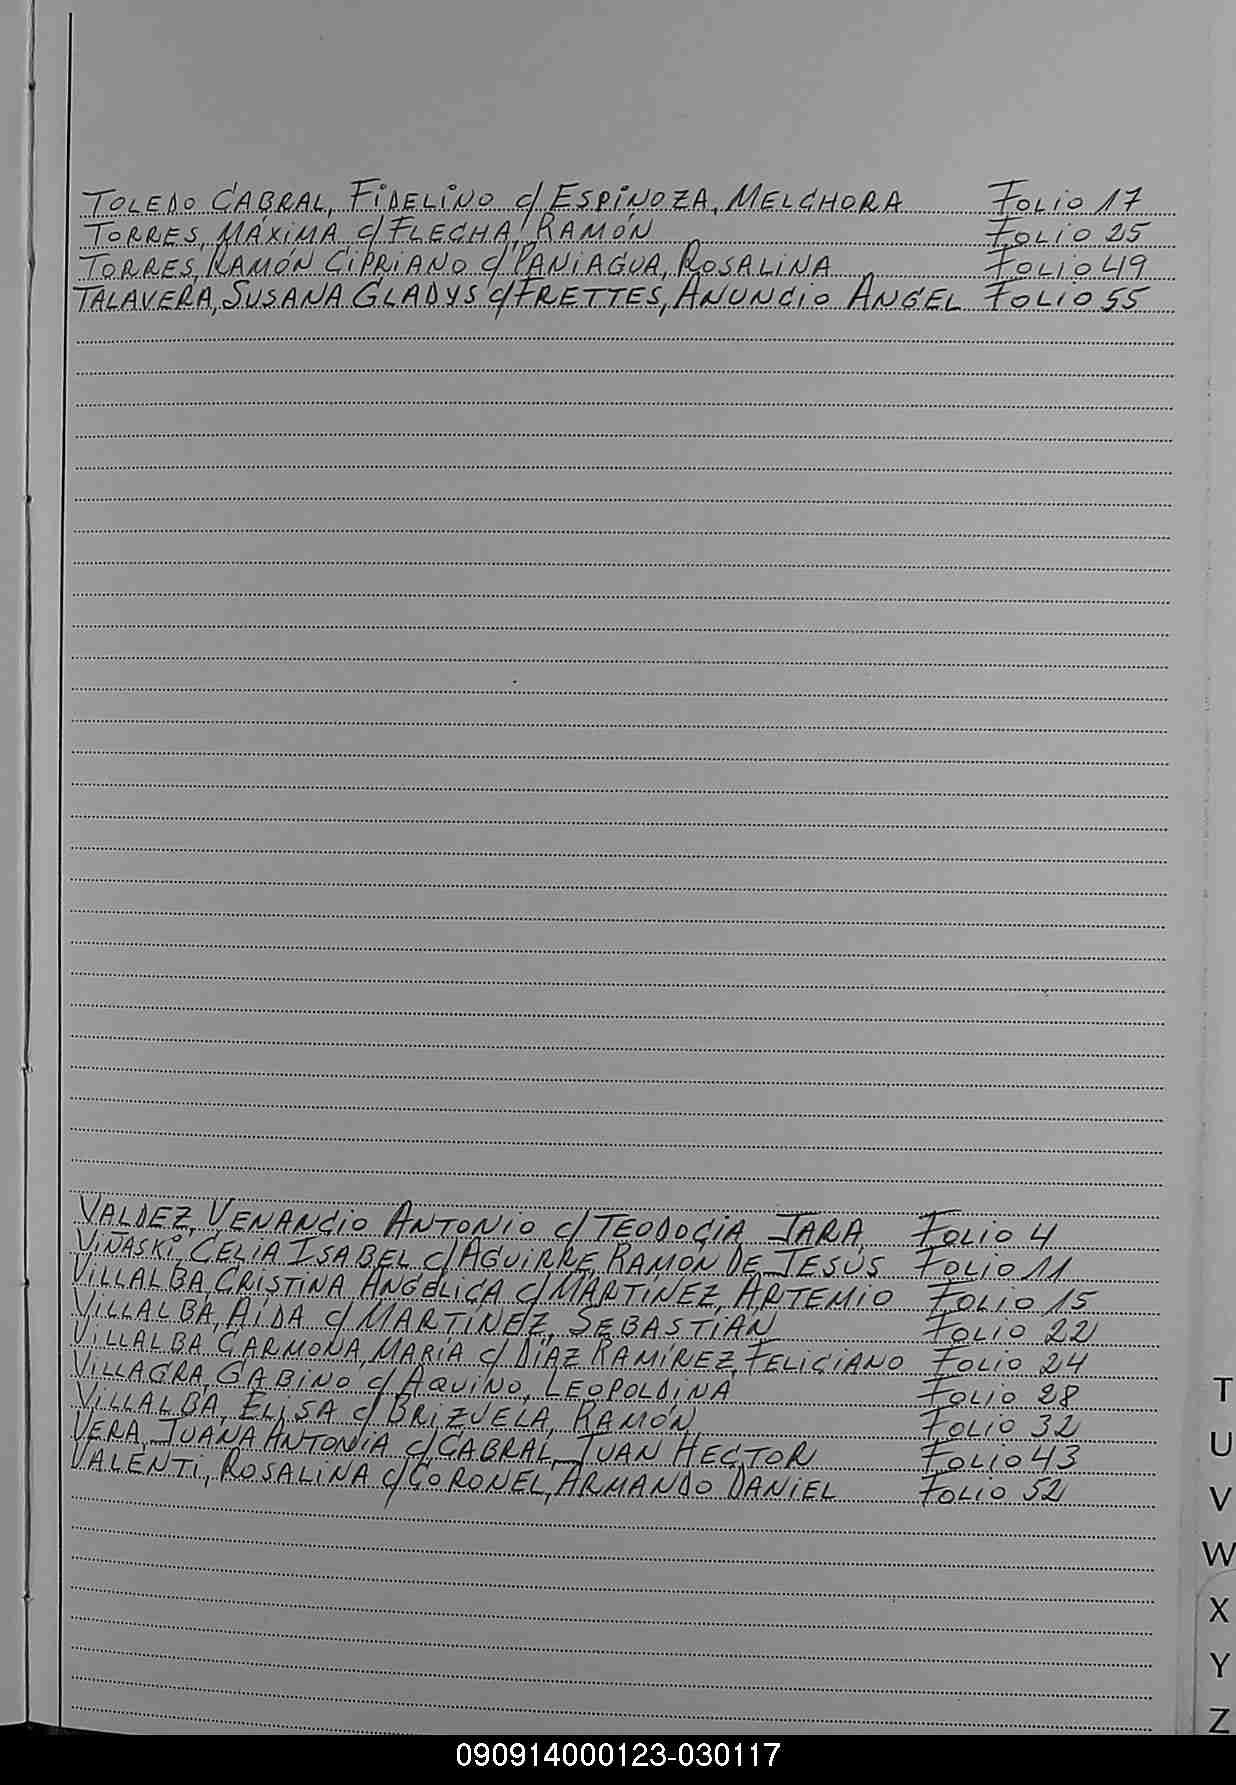 TOLEDO CABRAL, FIDELINO c/ ESPINOZA, MELCHORA FOLIO 17
TORRES, MÁXIMA c/ FLECHA, RAMÓN FOLIO 25
TORRES, RAMÓN CIPRIANO c/ PANIAGUA, ROSALINA FOLIO 49
TALAVERA, SUSANA GLADYS c/ FRETTES, ANUNCIO ANGEL FOLIO 55
VALDEZ, VENANCIO ANTONIO c/ TEODOCIA JARA FOLIO 4
VIÑASKI, CELIA ISABEL c/ AGUIRRE, RAMÓN DE JESÚS FOLIO 11
VILLALBA, CRISTINA ANGÉLICA c/ MARTÍNEZ, ARTEMIO FOLIO 15
VILLALBA, AÍDA c/ MARTÍNEZ, SEBASTIÁN FOLIO 22
VILLALBA CARMONA, MARÍA c/ DÍAZ RAMÍREZ, FELICIANO FOLIO 24
VILLAGRA, GABINO c/ AQUINO, LEOPOLDINA FOLIO 28
VILLALBA, ELISA c/ BRIZUELA, RAMÓN FOLIO 32
VERA, JUANA ANTONIA c/ CABRAL, JUAN HECTOR FOLIO 43
VALENTI, ROSALINA c/ CORONEL, ARMANDO DANIEL FOLIO 52
T
U
V
W
X
Y
Z
090914000123-030117